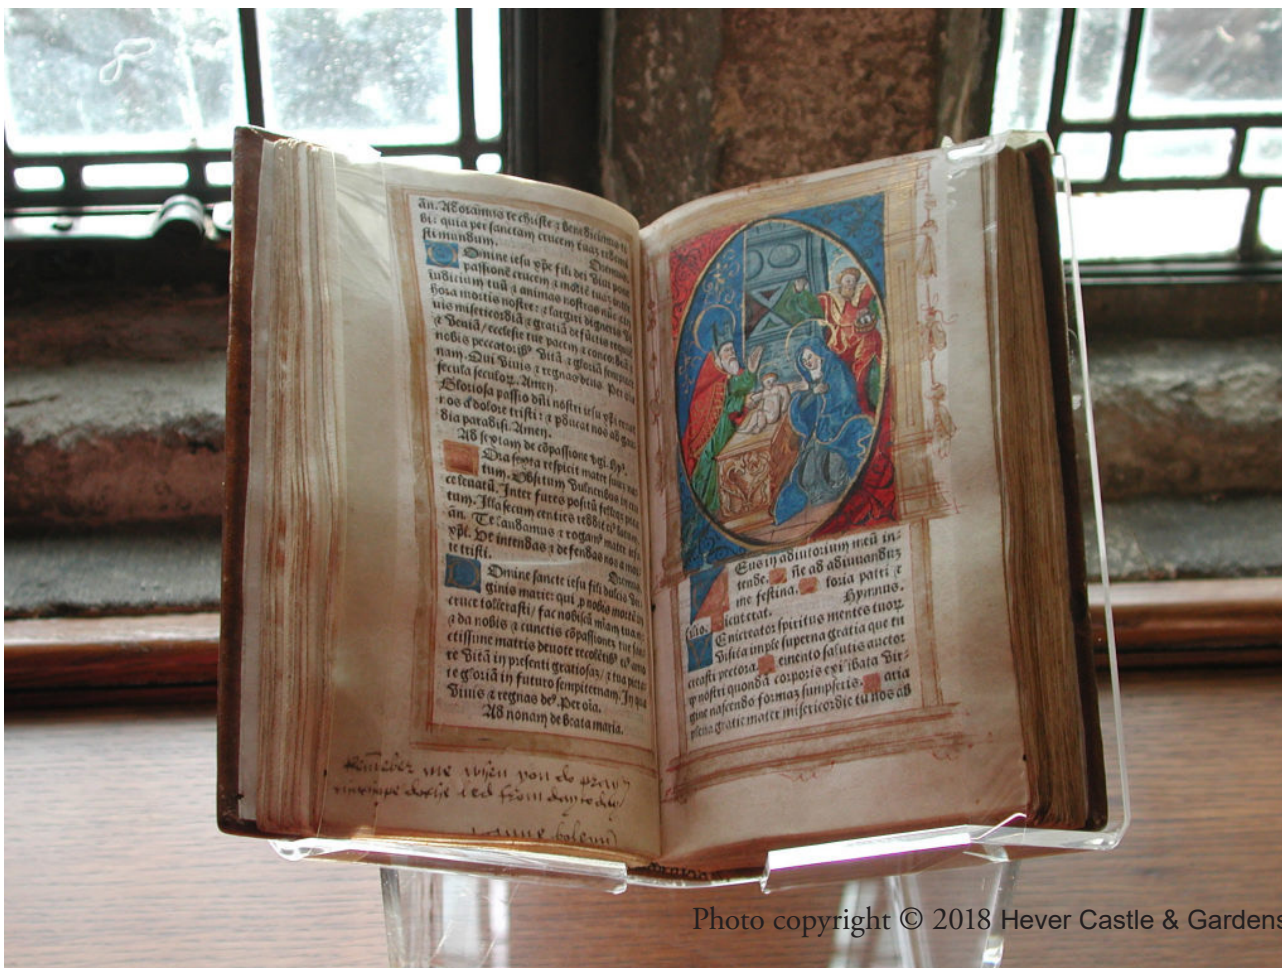 ān. Adoramus te christe ⁊ benedicimus ti
bi: quia per sanctam crucem tuaz redemi
sti mundum. Oremus.
Omine iesu xp̄e fili dei viui pone
passionē crucem ⁊ mortē tuaz inter
iudicium tuū ⁊ animas nostras nūc ⁊ in
hora mortis nostre: ⁊ largiri digneris vi
uis misericordiā ⁊ gratiā defūctis
⁊ veniā / ecclesie tue pacem ⁊ concordiā ⁊
nobis peccatoribꝰ vitā ⁊ gloriā sempiter
nam. Qui viuis ⁊ regnas deus. Per oīa
secula seculoꝝ. Amen.
Gloriosa passio dn̄i nostri iesu xp̄i
nos a dolore tristi: ⁊ ꝑducat nos ad gau
dia paradisi. Amen.
Ad sextam de cōpassione vgī. Hyꝰ.
Ora sexta respicit mater
tum. Obsitum vulneribus
celeuatū. Inter fures positū
tum. Illa secum centies reddit
ān. Te laudamus ⁊ rogamꝰ mater iesu
xp̄i. Vt intendas ⁊ defendas nos a mor
te tristi. Oremus.
Domine sancte iesu fili dulcis vir
ginis marie: qui ꝓ nobis mortē in
cruce tolerasti / fac nobiscū miam tuam
⁊ da nobis ⁊ cunctis cōpassionez tue san
ctissime matris deuote recolētibꝰ
re vitā in presenti gratiosaz / ⁊ tua pieta
te gloriā in futuro sempiternam. In qua
viuis ⁊ regnas deꝰ. Per oīa.
Ad nonam de beata maria.
remember me when you do pray
hope dothe led from day to day
anne boleyn
Eus in adiutorium meū in
tende. ne ad adiuuanduz
me festina. loria patri ⁊
filio. icut erat. Hymnus.
Veni creator spiritus mentes tuoꝝ
visita imple superna gratia que tu
creasti pectora. emento salutis auctor
ꝙ nostri quondā corporis ex illibata vir
gine nascendo formaz sumpseris. aria
plena gratie mater misericordie tu nos ab
Photo copyright © 2018 Hever Castle & Gardens